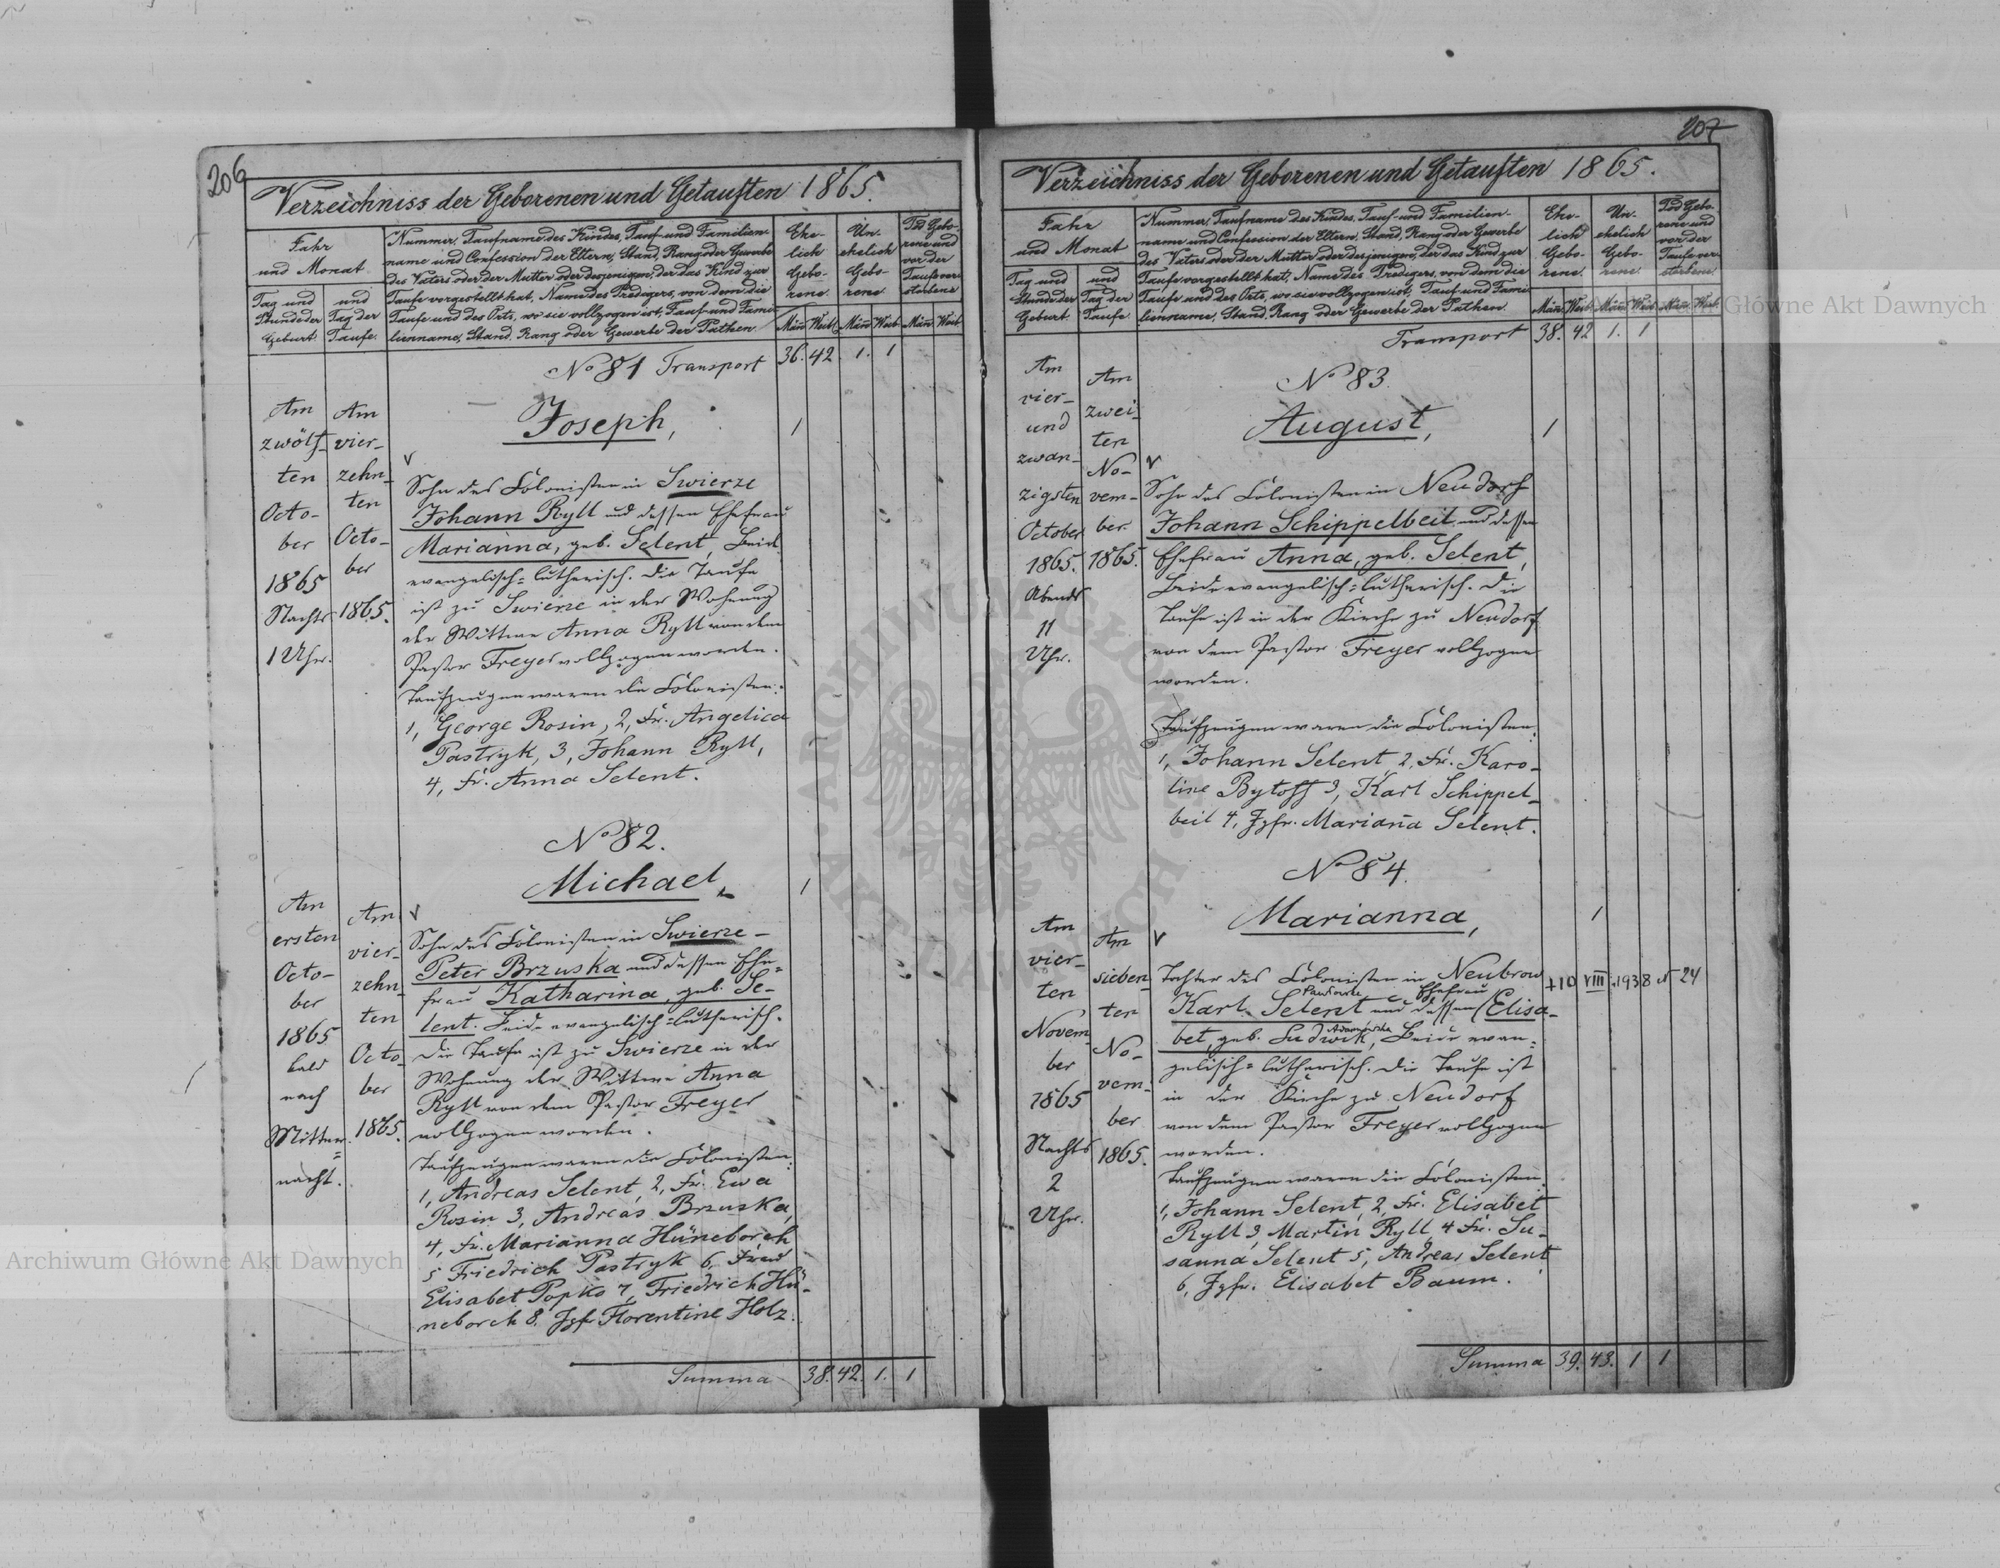 206
Verzeichniss der Geborenen und Getauften 1865.
Jahr
und Monat
Tag und
Stunde der
Geburt.
und
Tag der
Taufe.
Nummer, Taufname des Kindes, Tauf- und Familien-
name und Confession der Eltern, Stand, Rang oder Gewerbe
des Vaters oder der Mutter oder desjenigen, der das Kind zur
Taufe vorgestellt hat, Name des Predigers, von dem die
Taufe und des Orts, wo sie vollzogen ist, Tauf- und Fami-
lienname, Stand, Rang oder Gewerbe der Pathen.
Ehe-
lich
Gebo-
rene.
Un-
ehelich
Gebo-
rene.
Tod Gebo-
rene und
vor der
Taufe ver-
storbene
Män Weib Män Weib Män Weib
No 81 Transport 36. 42. 1. 1
Am
zwölf-
ten
Octo-
ber
1865
Nachts
1 Uhr.
Am
vier-
zehn-
ten
Octo-
ber
1865.
Joseph, 1
Sohn des Colonisten in Swierze
Johann Ryll und dessen Ehefrau
Marianna, geb. Selent, Beide
evangelisch-lutherisch. Die Taufe
ist zu Swierze in der Wohnung
der Wittwe Anna Ryll von dem
Pastor Freyer vollzogen worden.
Taufzeugen waren die Colonisten:
1, George Rosin, 2, Fr. Angelica
Pastryk, 3, Johann Ryll,
4, Fr. Anna Selent.
No 82.
Am
ersten
Octo-
ber
1865
bald
nach
Mitter-
nacht.
Am
vier-
zehn-
ten
Octo-
ber
1865.
Michael, 1
Sohn des Colonisten in Swierze -
Peter Brzuska und dessen Ehe-
frau Katharina, geb. Se-
lent. Beide evangelisch-lutherisch.
Die Taufe ist zu Swierze in der
Wohnung der Wittwe Anna
Ryll von dem Pastor Freyer
vollzogen worden.
Taufzeugen waren die Colonisten:
1, Andreas Selent, 2, Fr. Ewa
Rosin 3, Andreas Brzuska,
4, Fr. Marianna Hüneborch
5 Friedrich Pastryk 6, Frau
Elisabet Popko 7, Friedrich Hü-
neborch 8. Jgfr Florentine Holz.
Summa 38. 42. 1. 1
207
Verzeichniss der Geborenen und Getauften 1865.
Jahr
und Monat
Tag und
Stunde der
Geburt.
und
Tag der
Taufe.
Nummer, Taufname des Kindes, Tauf- und Familien-
name und Confession der Eltern, Stand, Rang oder Gewerbe
des Vaters oder der Mutter oder desjenigen, der das Kind zur
Taufe vorgestellt hat, Name des Predigers, von dem die
Taufe und des Orts, wo sie vollzogen ist, Tauf- und Fami-
lienname, Stand, Rang oder Gewerbe der Pathen.
Ehe-
lich
Gebo-
rene.
Un-
ehelich
Gebo-
rene.
Tod Gebo-
rene und
vor der
Taufe ver-
storbene.
Män Weib Män Weib Män Weib
Transport 38. 42 1. 1
No 83.
Am
vier-
und
zwan-
zigsten
October
1865.
Abends
11
Uhr.
Am
zwei-
ten
No-
vem-
ber
1865.
August, 1
Sohn des Colonisten in Neudorf
Johann Schippelbeit und dessen
Ehefrau Anna, geb. Selent,
Beide evangelisch-lutherisch. Die
Taufe ist in der Kirche zu Neudorf
von dem Pastor Freyer vollzogen
worden.
Taufzeugen waren die Colonisten:
1, Johann Selent, 2, Fr. Karo-
line Bytoff 3, Karl Schippel-
beit 4, Jgfr. Marianna Selent.
No 84.
Am
vier-
ten
Novem-
ber
1865
Nachts
2
Uhr.
Am
sieben-
ten
No-
vem-
ber
1865.
Marianna, 1
Tochter des Colonisten in Neubrow +10 VIII. 1938 N 24
Karl Selent und dessen Ehefrau Elisa-
bet, geb. Ludwik, Beide evan-
gelisch-lutherisch. Die Taufe ist
in der Kirche zu Neudorf
von dem Pastor Freyer vollzogen
worden.
Taufzeugen waren die Colonisten:
1, Johann Selent, 2, Fr. Elisabet
Ryll 3, Martin Ryll, 4 Fr. Su-
sanna Selent 5, Andreas Selent
6, Jgfr. Elisabet Baum.
Summa 39. 43. 1 1
Archiwum Główne Akt Dawnych
Główne Akt Dawnych